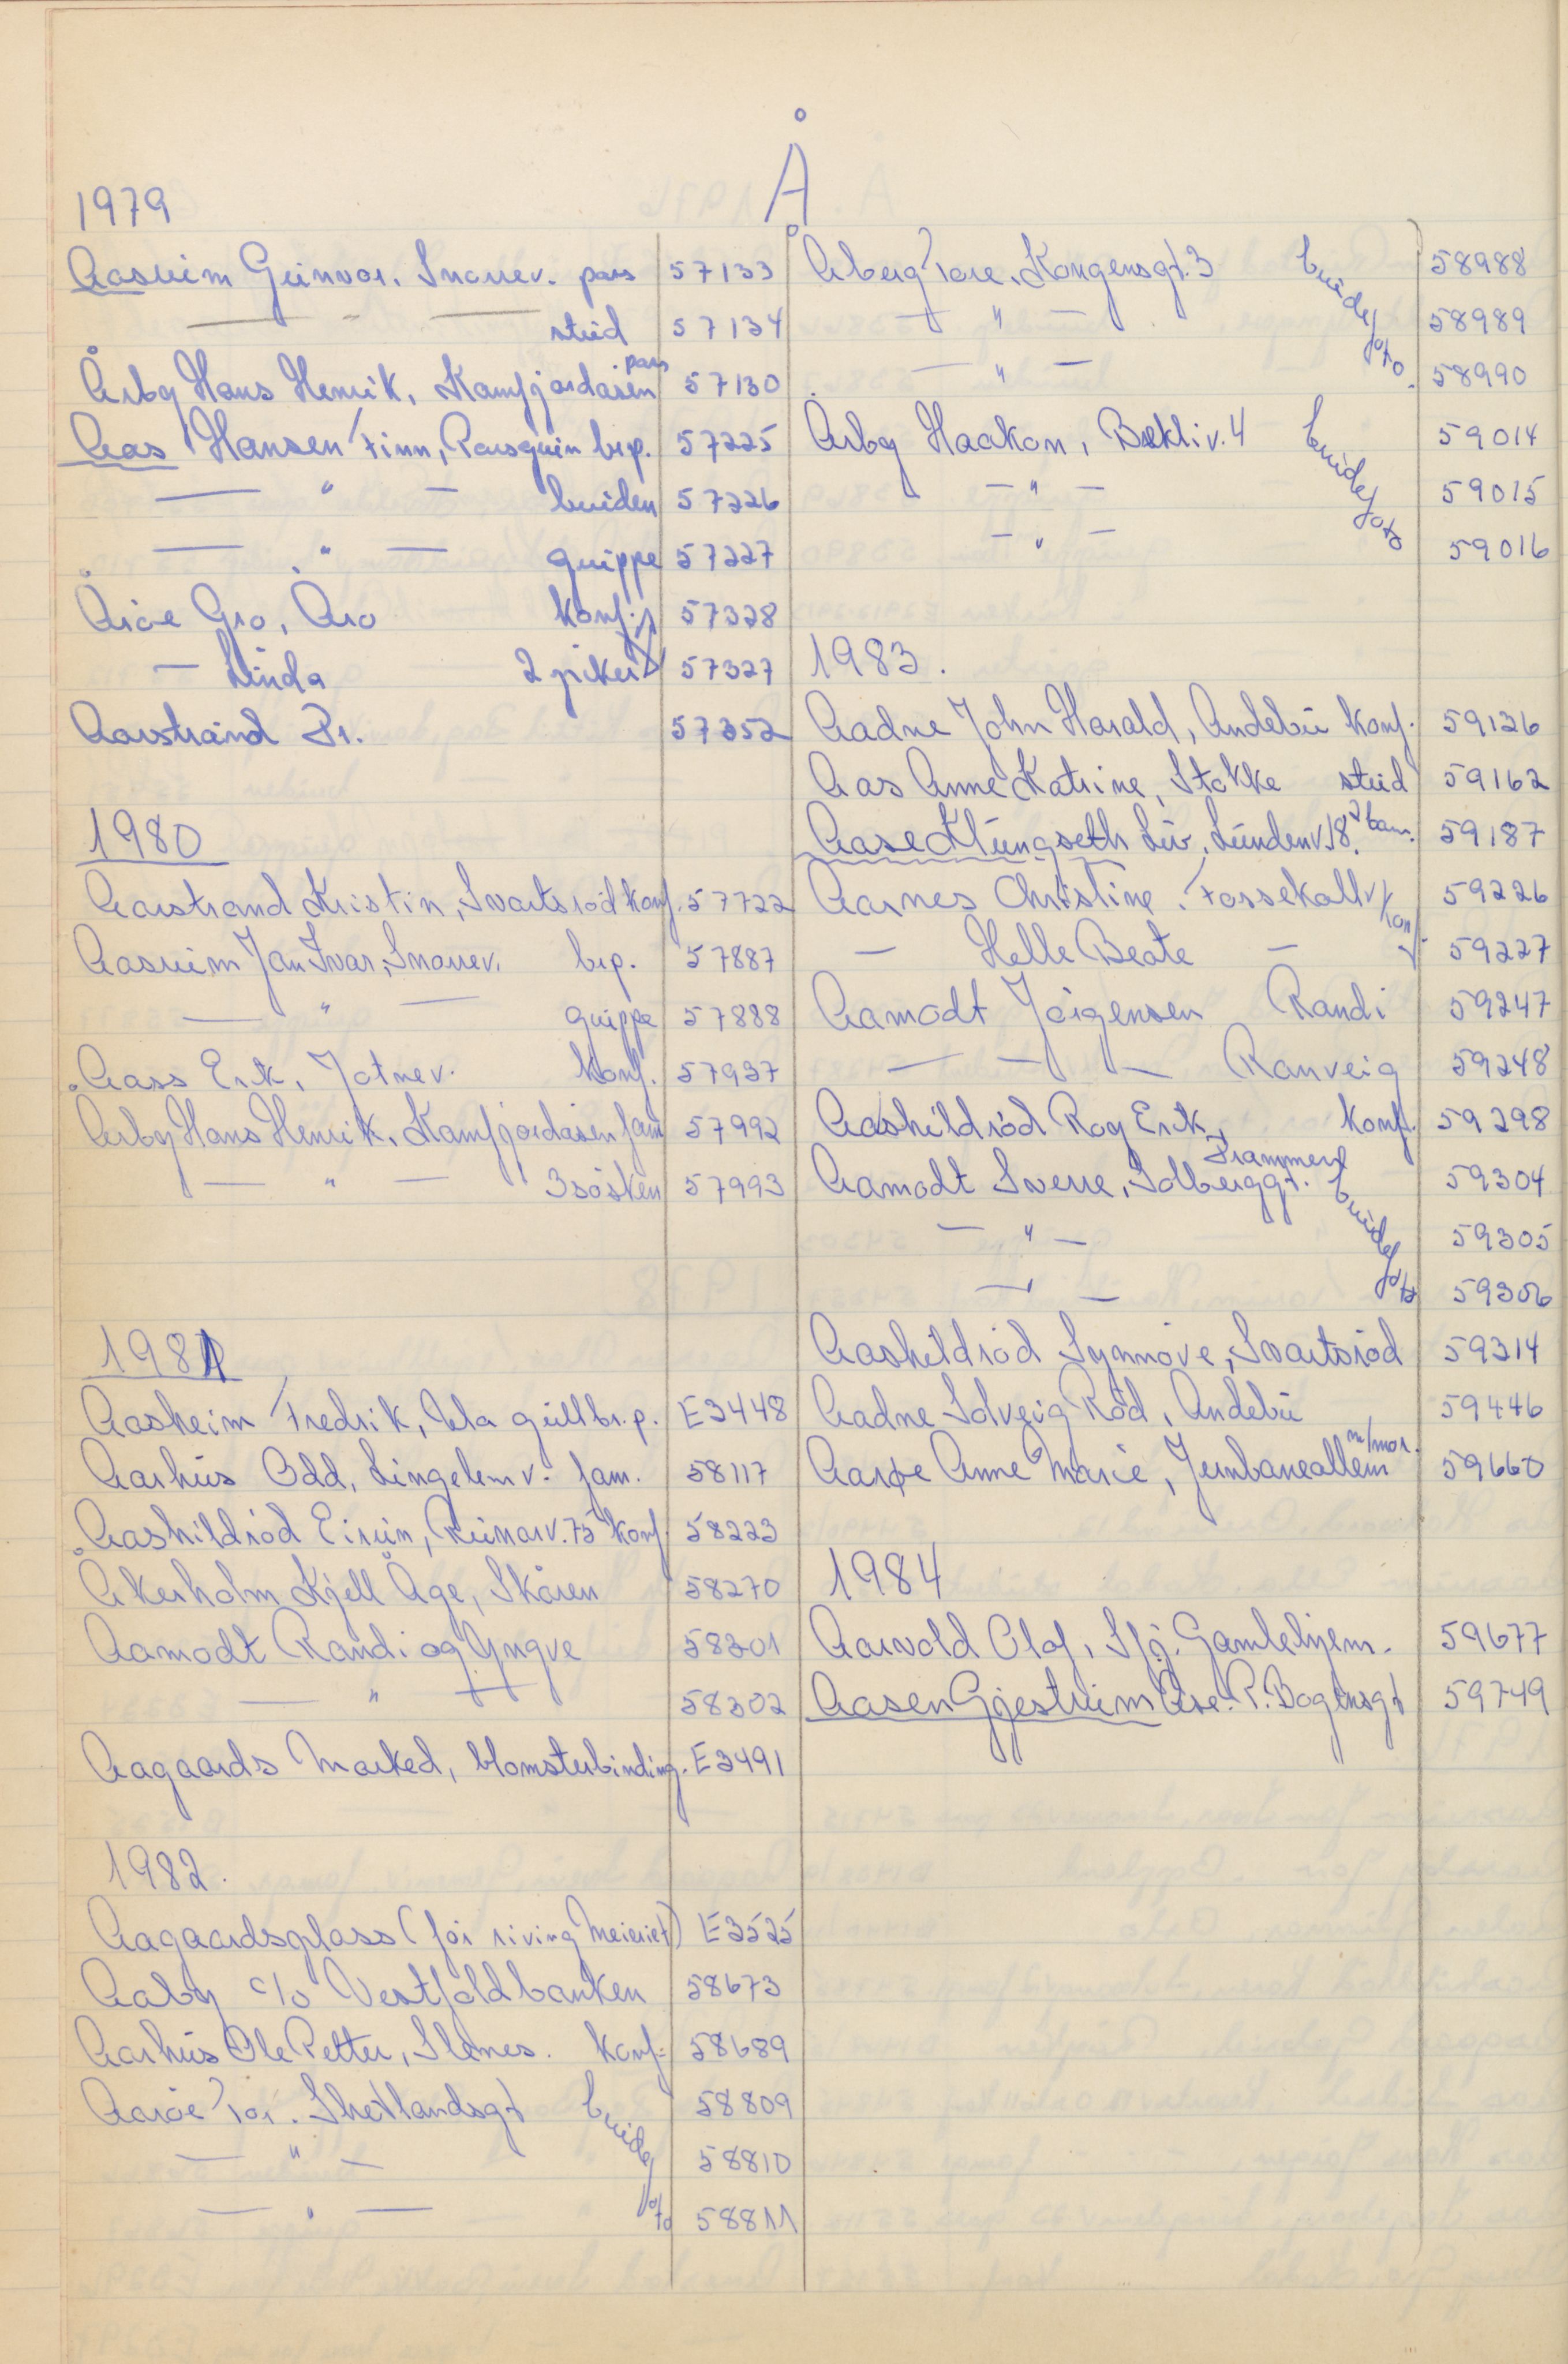 Å
1979
Aasrum Gunvor, Snorrev. pass 57133
— " — stud 57134
Årby Hans Henrik, Kamfjordåsen pass 57130
Aas Hansen Finn, brp. 57225
— " — bruden 57226
— " — gruppe 57227
Åröe Gro, Åro konf. 57328
— Linda 2 piker 57327
Aarstrand Br. 57352
1980
Aarstrand Kristin, Svartsröd konf. 57722
Aasrum Jan Ivar, Snorrev. brp. 57887
— " — gruppe 57888
Aass Erik, Jotnev. konf. 57937
Årby Hans Henrik, Kamfjordåsen fam 57992
— " — 3 sösken 57993
1981
Aasheim Fredrik, Ula gullbr.p. E3448
Aarhus Odd, Lingelemv. fam. 58117
Aashildröd Eirun, Runarv. 75 konf. 58223
Åkerholm Kjell Åge, Skåren 58270
Aamodt Randi og Yngve 58301
— " — 58302
Aagaards Marked, blomsterbinding. E3491
1982.
Aagaardsplass (för riving Meieriet) E3525
Aaby c/o Vestfoldbanken 58673
Aarhus Ole Petter, Slemes. konf. 58689
Aaröe Tor. Shetlandsgt brudefoto 58809
— " — 58810
— " — 58811
Åberg Tore, Kongensgt. 3 brudefoto 58988
— " — 58989
— " — 58990
Årby Haakon, Bekkliv. 4 brudefoto 59014
— " — 59015
— " — 59016
1983.
Aadne John Harald, Andebu konf. 59136
Aas Anne Katrine, Stokke stud 59162
Aase Klungseth Liv, Lundenv. 18. 2 barn. 59187
Aarnes Christine. Fossekallv konf 59226
— Helle Beate — 59227
Aamodt Jörgensen Randi 59247
— — — Ranveig 59248
Aashildröd Roy Erik, konf. 59298
Framnes
Aamodt Sverre, Solberggt. brudefoto 59304
— " — 59305
— " — 59306
Aashildröd Synnöve, Svartsröd 59314
Aadne Solveig Röd, Andebu 59446
Aarøe Anne Marie, Jernbanealleen m/mor. 59660
1984
Aarvold Olof, Sfj. Gamlehjem. 59677
Aasen Gjestrum Åse. P. Bogensgt 59749